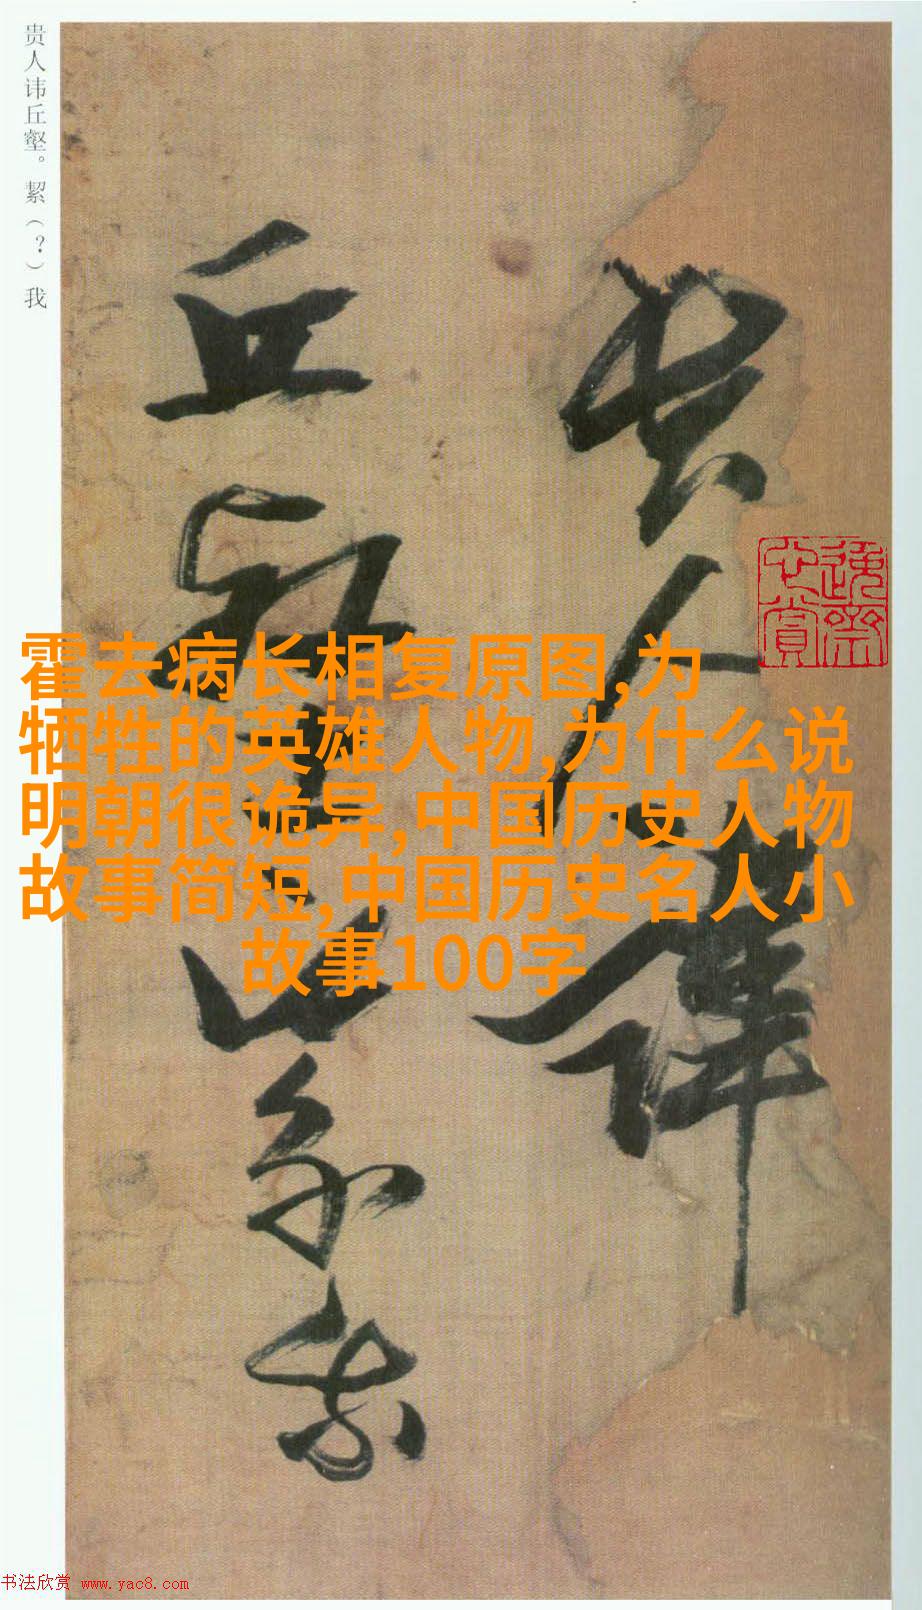 贵人讳丘壑。絜（？）我
贵人讳
丘壑絜我
霍去病长相复原图,为
牺牲的英雄人物,为什么说
明朝很诡异,中国历史人物
故事简短,中国历史名人小
故事100字
书法欣赏 www.yac8.com